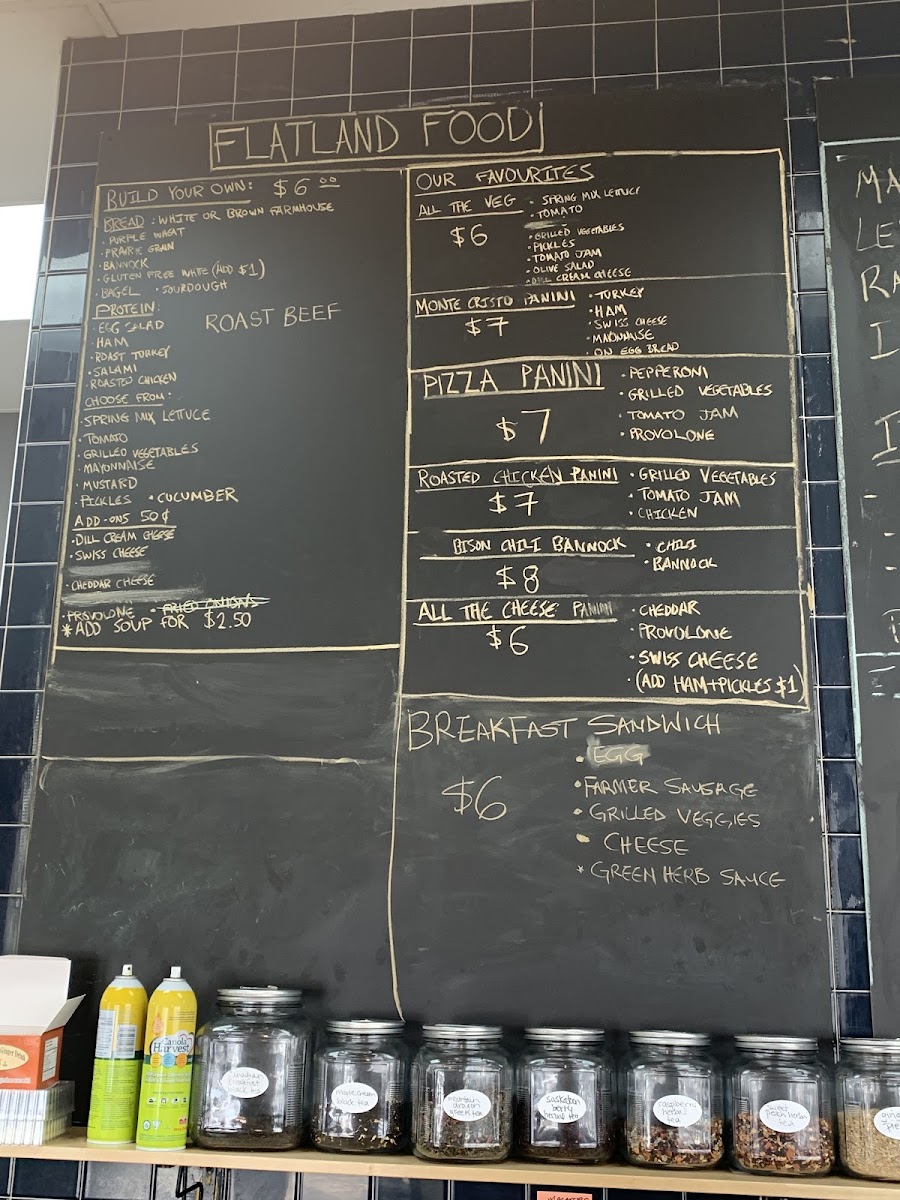 FLATLAND FOOD
BUILD YOUR OWN: $6.00
BREAD: WHITE OR BROWN FARMHOUSE
· PURPLE WHEAT
· PRAIRIE GRAIN
· BANNOCK
· GLUTEN FREE WHITE (ADD $1)
· BAGEL · SOURDOUGH
PROTEIN:
· EGG SALAD
ROAST BEEF
· HAM
· ROAST TURKEY
· SALAMI
· ROASTED CHICKEN
CHOOSE FROM:
· SPRING MIX LETTUCE
· TOMATO
· GRILLED VEGETABLES
· MAYONNAISE
· MUSTARD
· PICKLES · CUCUMBER
ADD-ONS 50¢
· DILL CREAM CHEESE
· SWISS CHEESE
· CHEDDAR CHEESE
· PROVOLONE · FRIED ONIONS
*ADD SOUP FOR $2.50
OUR FAVOURITES
ALL THE VEG
$6
· SPRING MIX LETTUCE
· TOMATO
· GRILLED VEGETABLES
· PICKLES
· TOMATO JAM
· OLIVE SALAD
· DILL CREAM CHEESE
MONTE CRISTO PANINI
$7
· TURKEY
· HAM
· SWISS CHEESE
· MAYONNAISE
· ON EGG BREAD
PIZZA PANINI
$7
· PEPPERONI
· GRILLED VEGETABLES
· TOMATO JAM
· PROVOLONE
ROASTED CHICKEN PANINI
$7
· GRILLED VEGETABLES
· TOMATO JAM
· CHICKEN
BISON CHILI BANNOCK
$8
· CHILI
· BANNOCK
ALL THE CHEESE PANINI
$6
· CHEDDAR
· PROVOLONE
· SWISS CHEESE
· (ADD HAM+PICKLES $1)
BREAKFAST SANDWICH
$6
· EGG
· FARMER SAUSAGE
· GRILLED VEGGIES
· CHEESE
* GREEN HERB SAUCE
Canola
Harvest
breakfast
black tea
maple cream
black tea
mountain
dragon
green tea
saskatoon
berry
herbal tea
raspberry
herbal
tea
sweet
peach herbal
tea